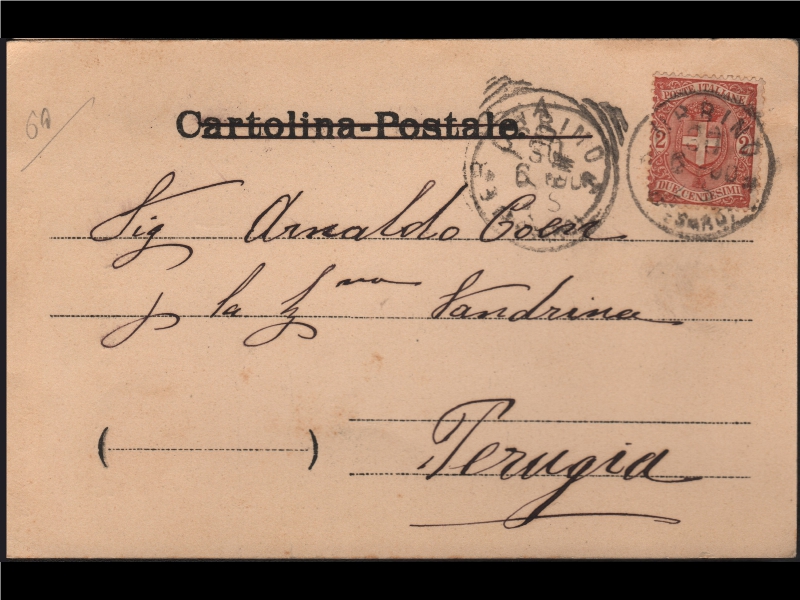 60
Cartolina-Postale.
POSTE ITALIANE
2 2
DUE CENTESIMI
Sig Arnaldo Coen
p la Sma Vandrina
Perugia